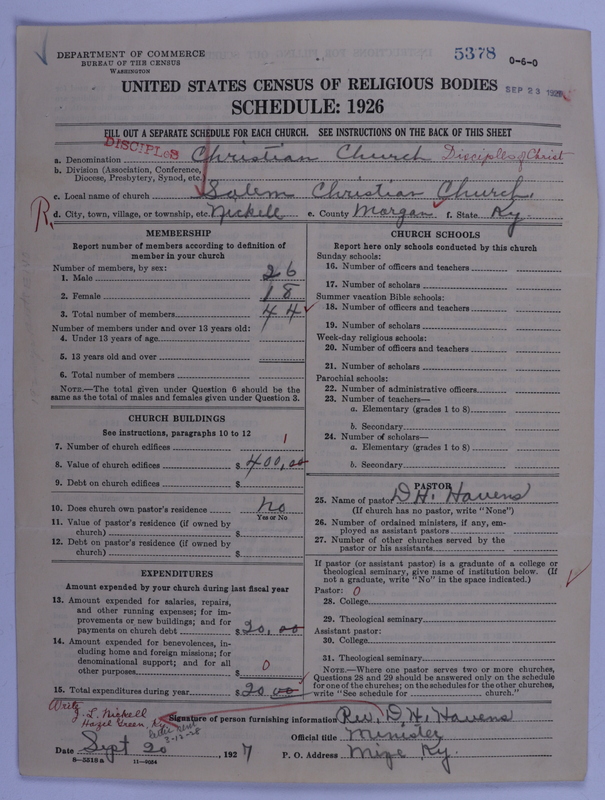 DEPARTMENT OF COMMERCE
BUREAU OF THE CENSUS
WASHINGTON
5378
0-6-0
UNITED STATES CENSUS OF RELIGIOUS BODIES
SEP 23 192
SCHEDULE: 1926
FILL OUT A SEPARATE SCHEDULE FOR EACH CHURCH. SEE INSTRUCTIONS ON THE BACK OF THIS SHEET
DISCIPLES
a. Denomination Christian Church Disciples of Christ
b. Division (Association, Conference, Diocese, Presbytery, Synod, etc.
c. Local name of church Salem Christian Church
R.
d. City, town, village, or township, etc. Nickell e. County Morgan f. State Ky
MEMBERSHIP
Report number of members according to definition of
member in your church
Number of members, by sex:
1. Male 26
2. Female 18
3. Total number of members 44
Number of members under and over 13 years old:
4. Under 13 years of age
5. 13 years old and over
6. Total number of members
NOTE.—The total given under Question 6 should be the
same as the total of males and females given under Question 3.
CHURCH BUILDINGS
See instructions, paragraphs 10 to 12
7. Number of church edifices 1
8. Value of church edifices $ 400,00
9. Debt on church edifices $
10. Does church own pastor's residence no
Yes or No
11. Value of pastor's residence (if owned by
church) $
12. Debt on pastor's residence (if owned by
church) $
EXPENDITURES
Amount expended by your church during last fiscal year
13. Amount expended for salaries, repairs,
and other running expenses; for im-
provements or new buildings; and for
payments on church debt $ 20,00
14. Amount expended for benevolences, in-
cluding home and foreign missions; for
denominational support; and for all
other purposes $ 0
15. Total expenditures during year $ 20.00
CHURCH SCHOOLS
Report here only schools conducted by this church
Sunday schools:
16. Number of officers and teachers
17. Number of scholars
Summer vacation Bible schools:
18. Number of officers and teachers
19. Number of scholars
Week-day religious schools:
20. Number of officers and teachers
21. Number of scholars
Parochial schools:
22. Number of administrative officers
23. Number of teachers—
a. Elementary (grades 1 to 8)
b. Secondary
24. Number of scholars—
a. Elementary (grades 1 to 8)
b. Secondary
PASTOR
25. Name of pastor D. H. Havens
(If church has no pastor, write "None")
26. Number of ordained ministers, if any, em-
ployed as assistant pastors
27. Number of other churches served by the
pastor or his assistants
If pastor (or assistant pastor) is a graduate of a college or
theological seminary, give name of institution below. (If
not a graduate, write "No" in the space indicated.)
Pastor: 0
28. College
29. Theological seminary
Assistant pastor:
30. College
31. Theological seminary
NOTE.—Where one pastor serves two or more churches,
Questions 28 and 29 should be answered only on the schedule
for one of the churches; on the schedules for the other churches,
write "See schedule for church."
Write
J. L. Nickell
Hazel Green, Ky.
letter sent
3-12-28
Signature of person furnishing information Rev. D. H. Havens
Official title Minister
Date Sept 20, 1927 P. O. Address Mize Ky.
8—5318 a 11—9084